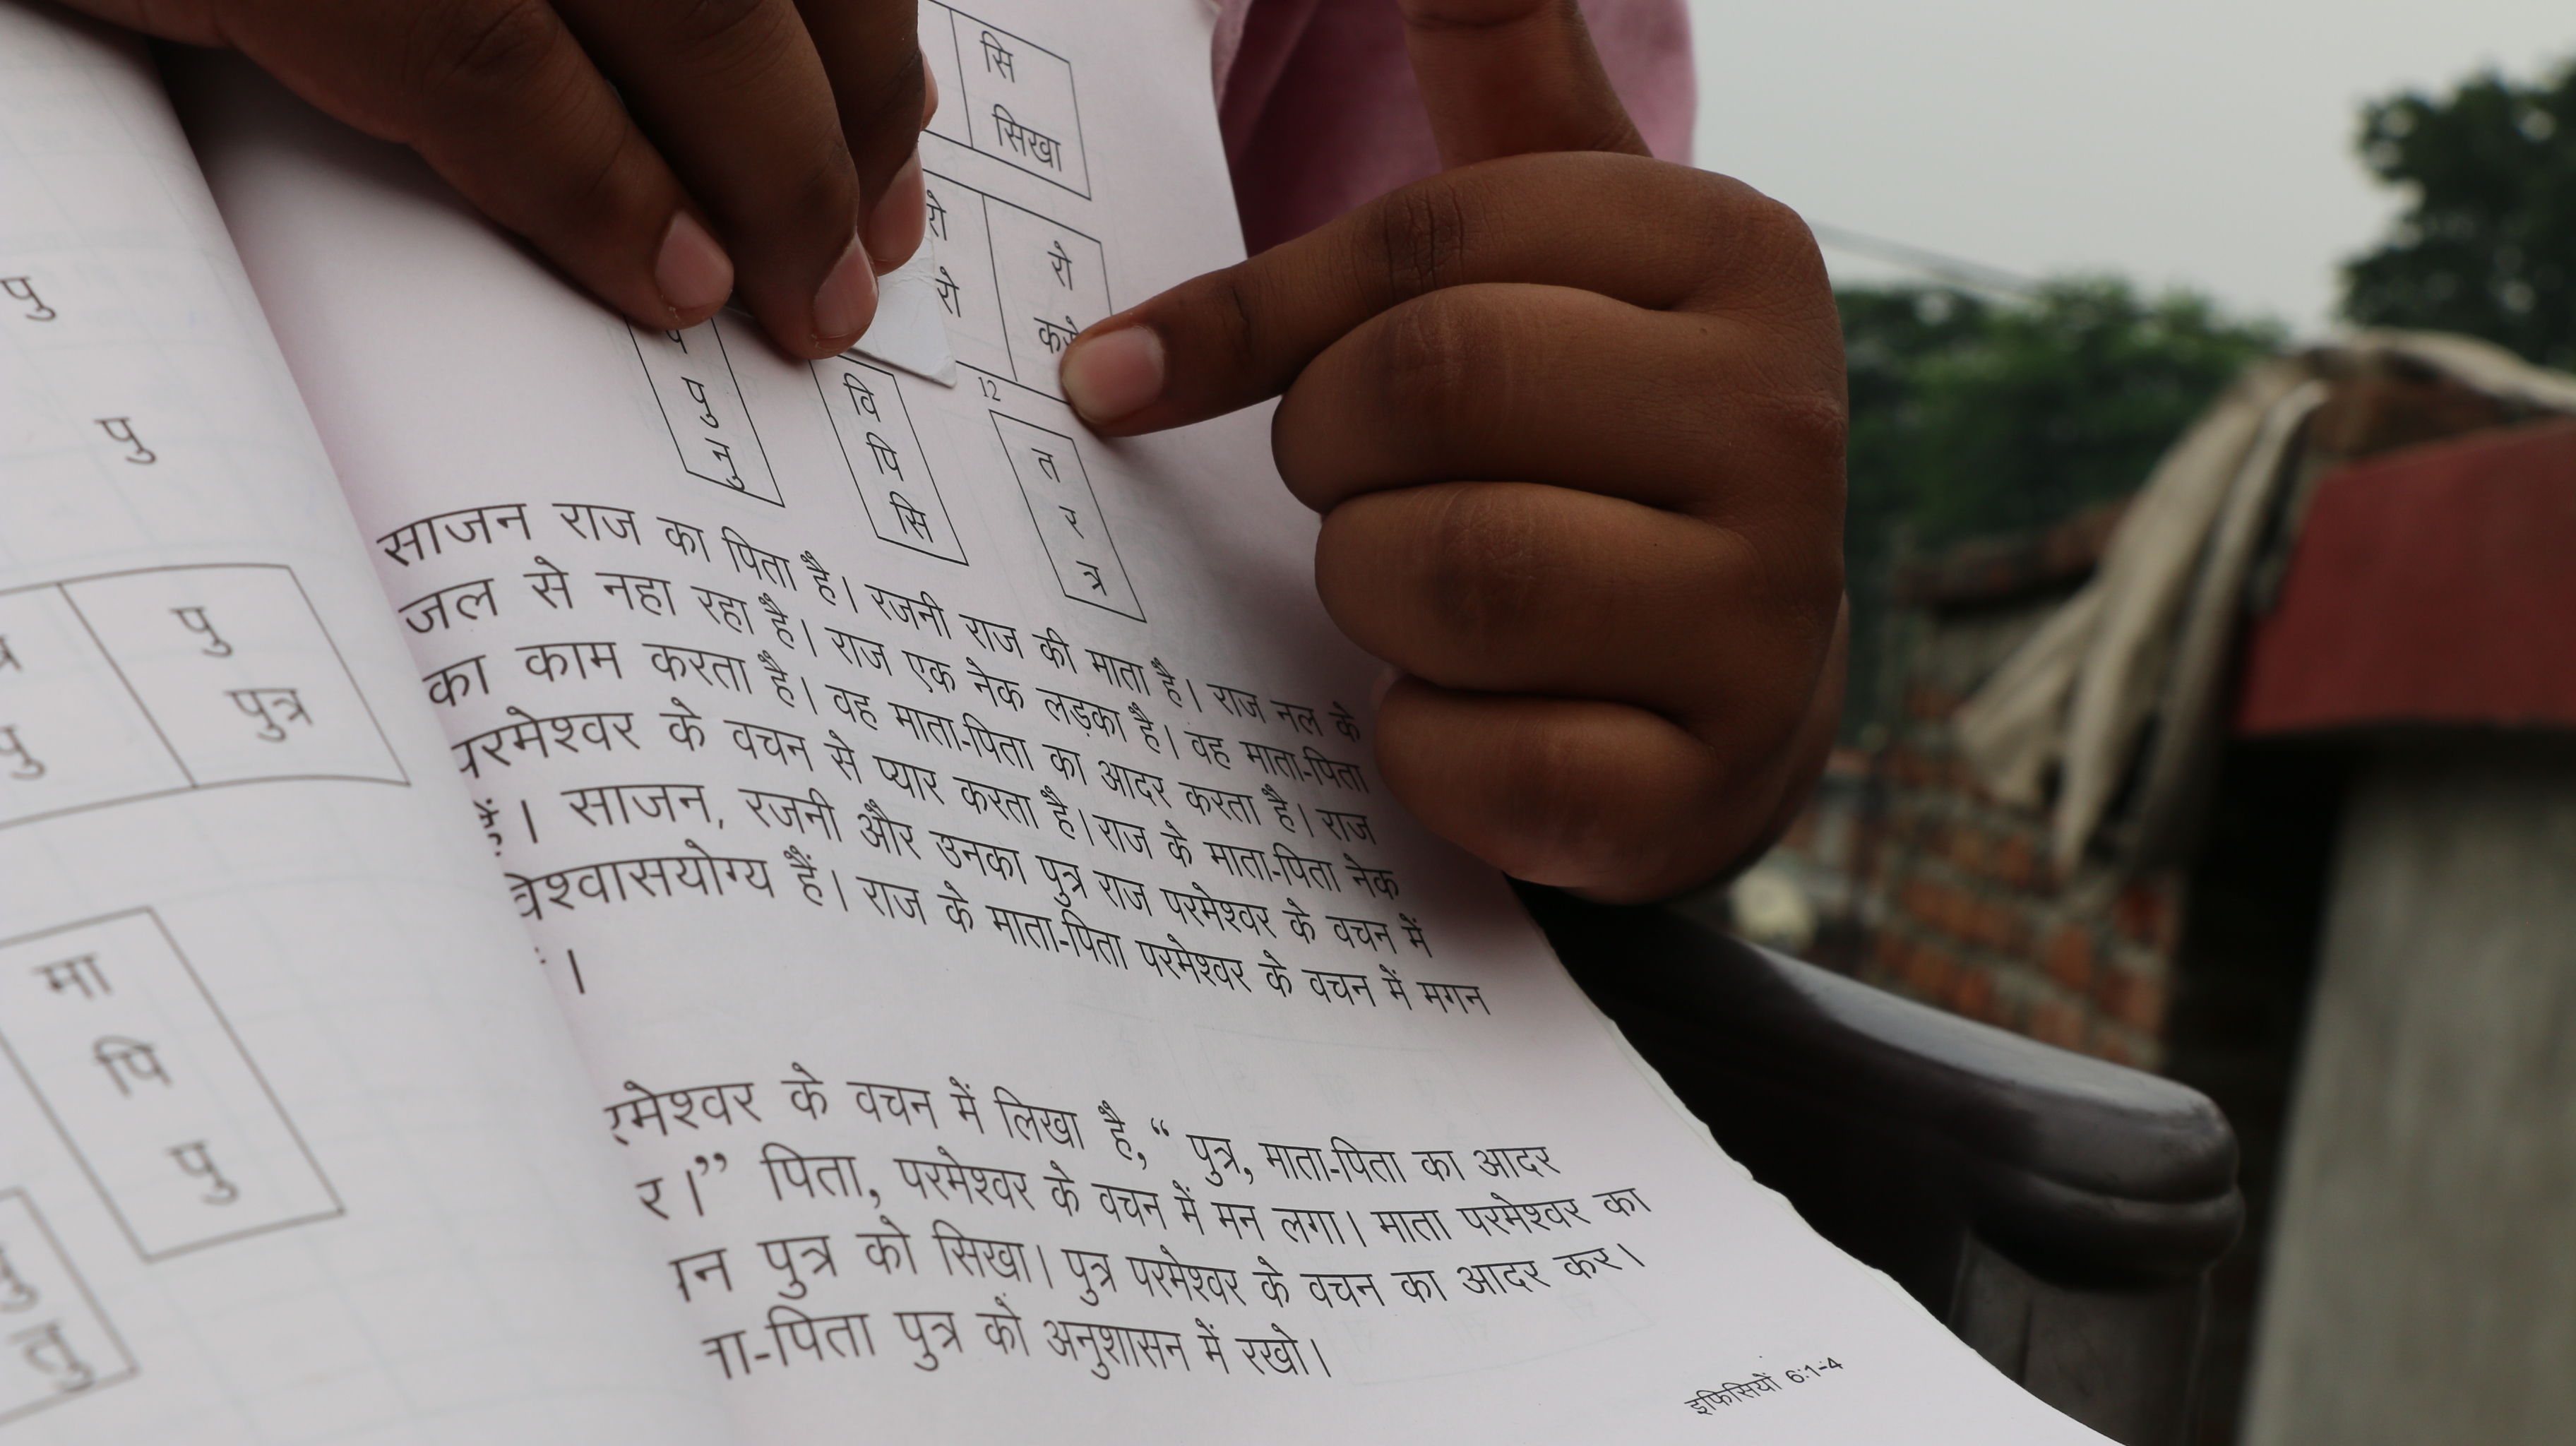 पु
पु
पु
पुत्र
पु
मा
पि
पु
तु
सि
सिखा
रो
रो
रो
12
पु
नु
वि
पि
सि
त
र
त्र
साजन राज का पिता है। रजनी राज की माता है। राज नल के
जल से नहा रहा है। राज एक नेक लड़का है। वह माता-पिता
का काम करता है। वह माता-पिता का आदर करता है। राज
परमेश्वर के वचन से प्यार करता है। राज के माता-पिता नेक
हैं। साजन, रजनी और उनका पुत्र राज परमेश्वर के वचन में
विश्वासयोग्य हैं। राज के माता-पिता परमेश्वर के वचन में मगन
।
रमेश्वर के वचन में लिखा है, “ पुत्र, माता-पिता का आदर
र।” पिता, परमेश्वर के वचन में मन लगा। माता परमेश्वर का
न पुत्र को सिखा। पुत्र परमेश्वर के वचन का आदर कर।
ता-पिता पुत्र को अनुशासन में रखो।
इफिसियों 6:1-4